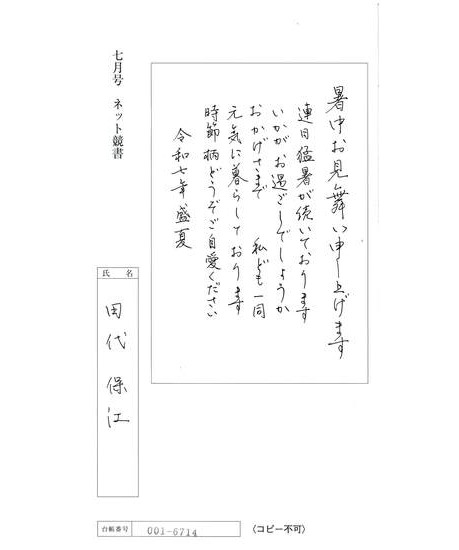 暑中お見舞い申し上げます
連日猛暑が続いております
いかがお過ごしでしょうか
おかげさまで　私ども一同
元気に暮らしております
時節柄どうぞご自愛ください
令和七年　盛夏
七月号　ネット競書
氏名
田代保江
台帳番号
001-6714
〈コピー不可〉